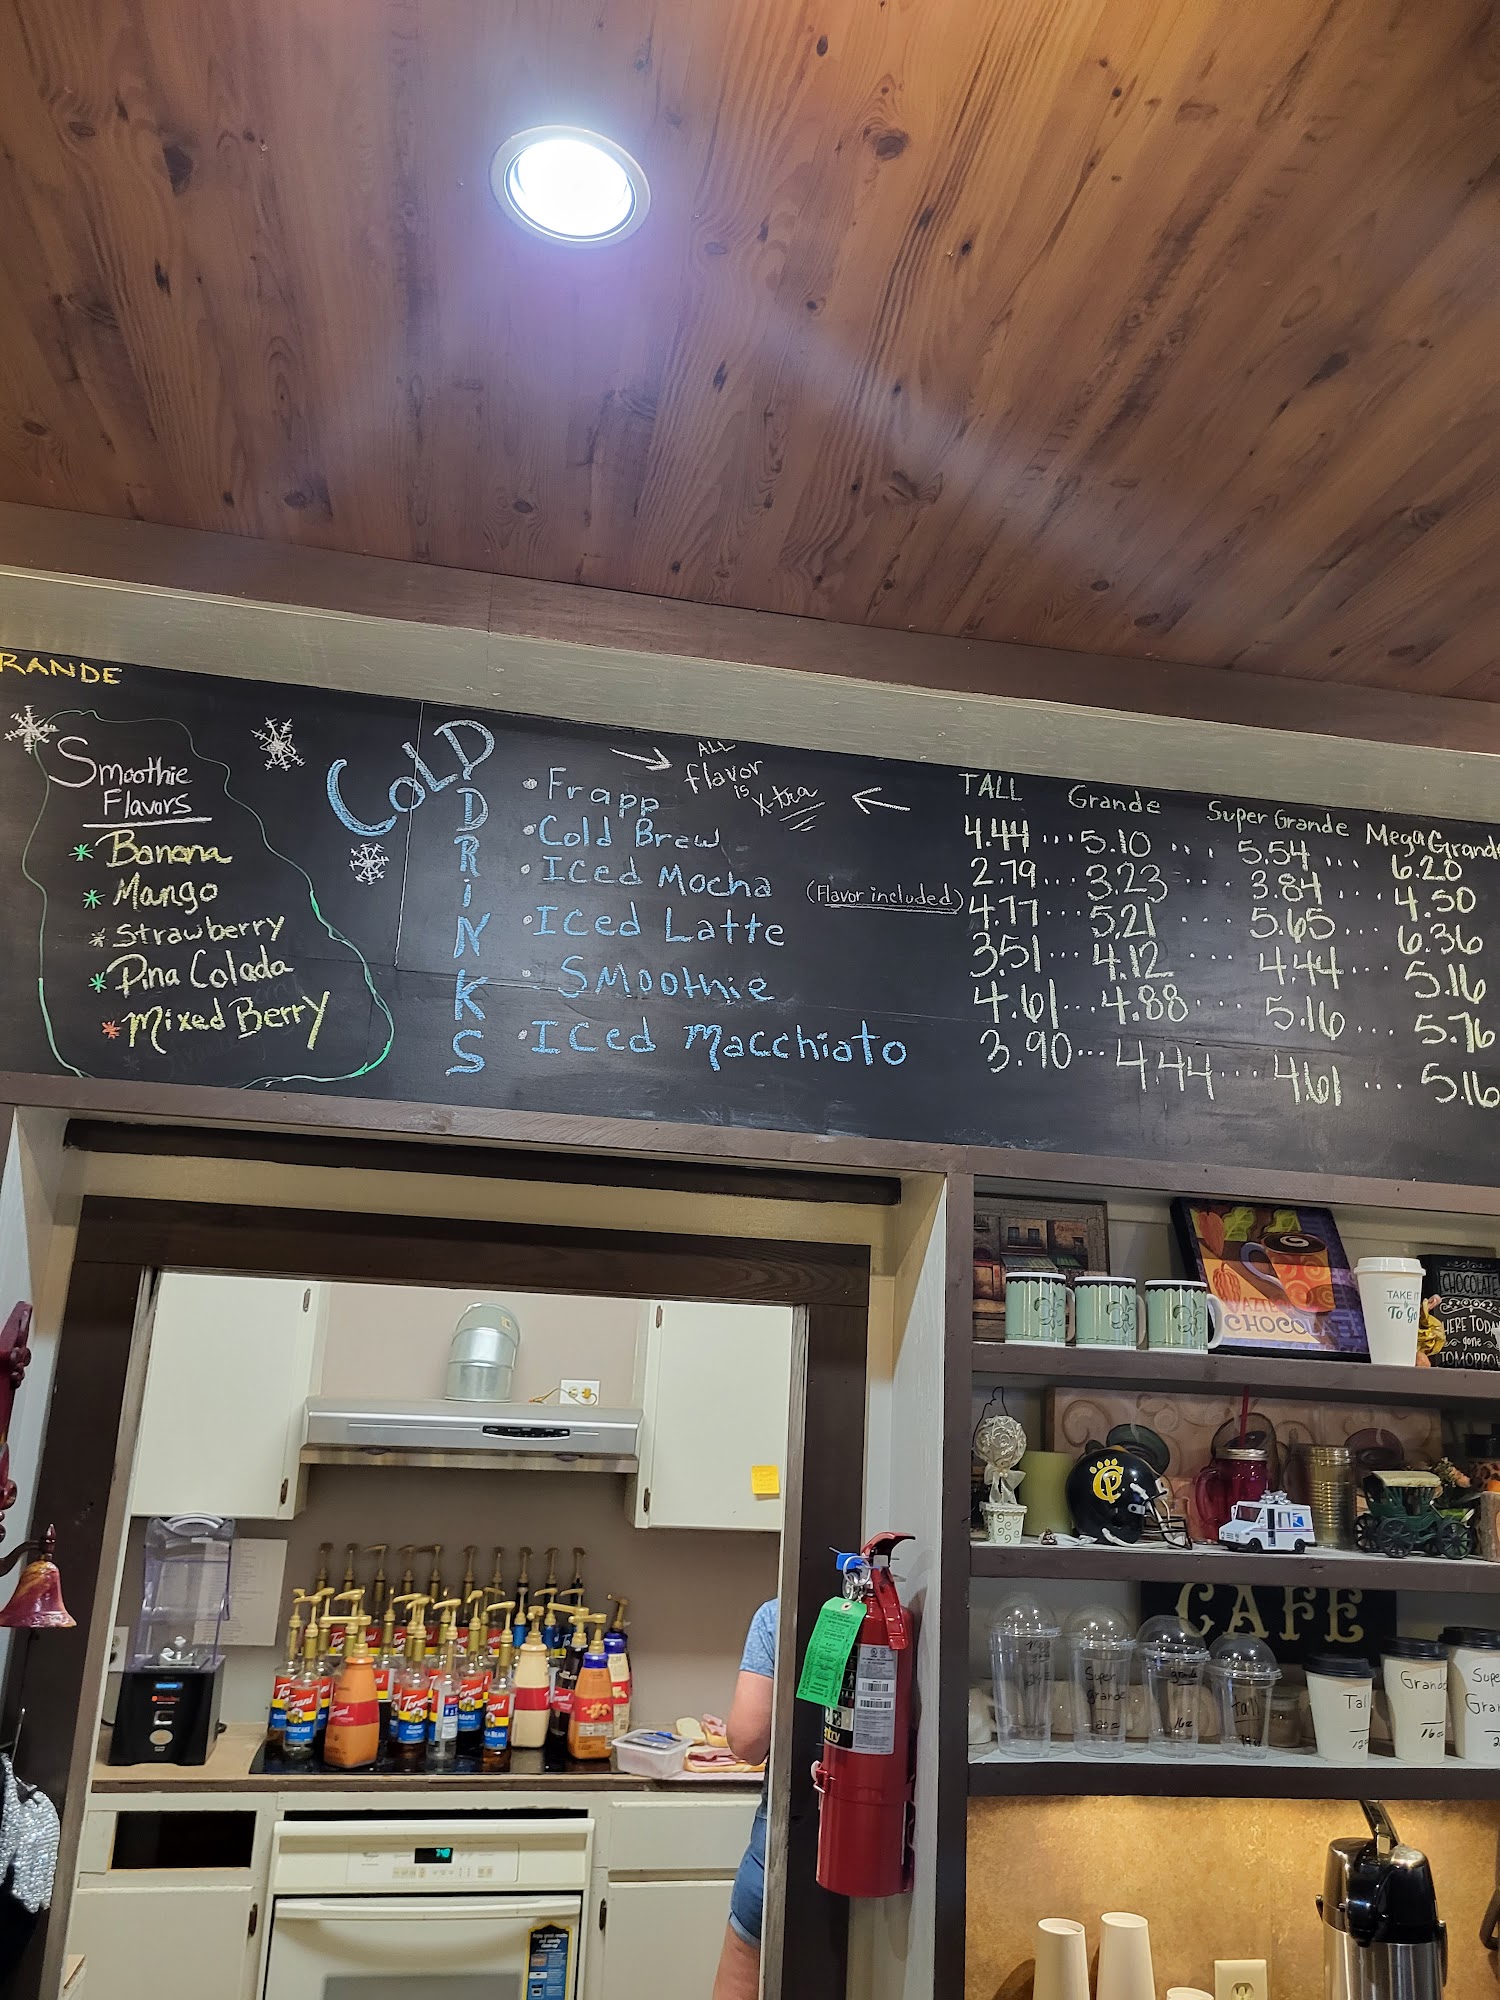 RANDE
Smoothie
Flavors
* Banana
* Mango
* Strawberry
* Pina Colada
* Mixed Berry
COLD
DRiNKS
ALL
flavor
is
X-tra
TALL Grande Super Grande Mega Grande
• Frapp 4.44 ... 5.10 ... 5.54 ... 6.20
• Cold Brew 2.79 ... 3.23 ... 3.84 ... 4.50
• Iced Mocha (Flavor included) 4.77 ... 5.21 ... 5.65 ... 6.36
• Iced Latte 3.51 ... 4.12 ... 4.44 ... 5.16
• Smoothie 4.61 ... 4.88 ... 5.16 ... 5.76
• Iced Macchiato 3.90 ... 4.44 ... 4.61 ... 5.16
CHOCOLAT
TAKE IT
To Go
CHOCOLATE
HERE TODAY
gone
TOMORROW
CP
CAFE
Super
Grande
grande
16oz
Tall
Tall
12oz
Grande
16oz
Super
Grande
Torani
Torani
Torani
Torani